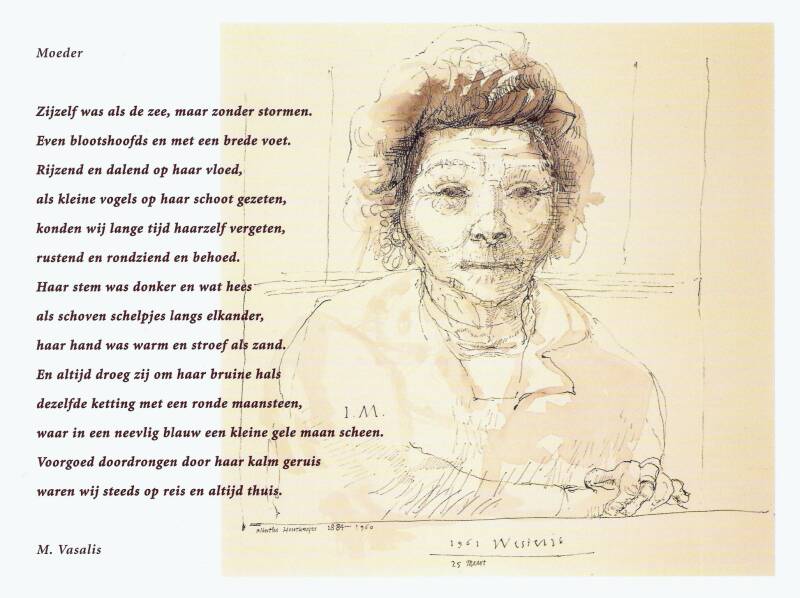 Moeder
Zijzelf was als de zee, maar zonder stormen.
Even blootshoofds en met een brede voet.
Rijzend en dalend op haar vloed,
als kleine vogels op haar schoot gezeten,
konden wij lange tijd haarzelf vergeten,
rustend en rondziend en behoed.
Haar stem was donker en wat hees
als schoven schelpjes langs elkander,
haar hand was warm en stroef als zand.
En altijd droeg zij om haar bruine hals
dezelfde ketting met een ronde maansteen,
waar in een neevlig blauw een kleine gele maan scheen.
Voorgoed doordrongen door haar kalm geruis
waren wij steeds op reis en altijd thuis.
M. Vasalis
I.M.
1884 – 1960
1961
25 Maart